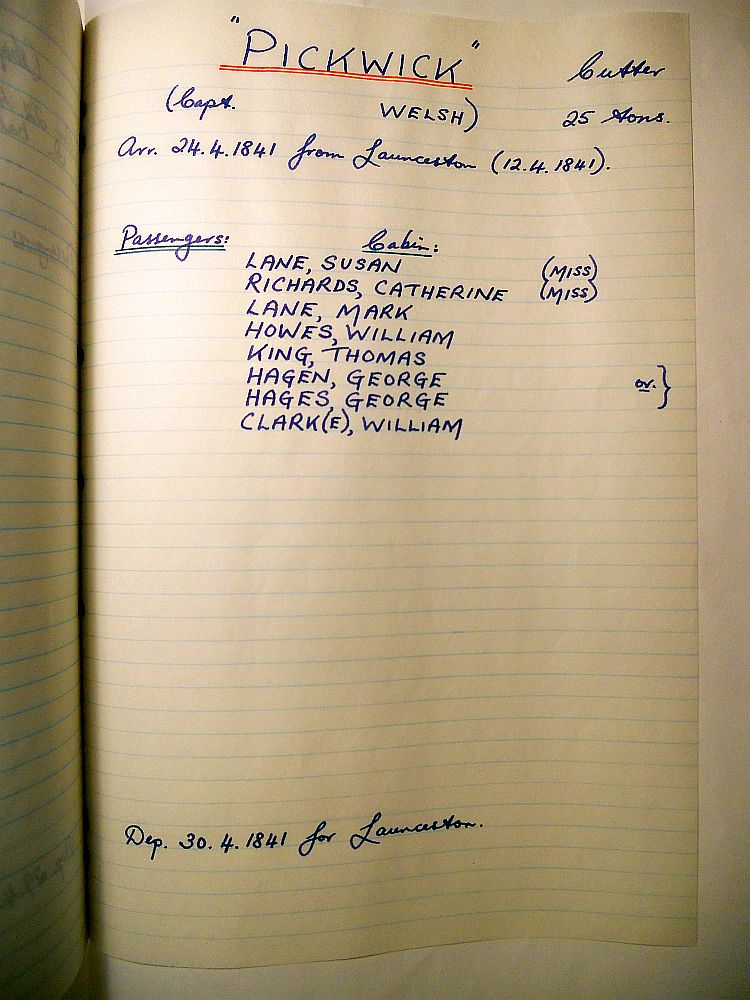 "PICKWICK" Cutter
(Capt. WELSH) 25 tons.
Arr. 24.4.1841 from Launceston (12.4.1841).
Passengers: Cabin:
LANE, SUSAN (MISS)
RICHARDS, CATHERINE (MISS)
LANE, MARK
HOWES, WILLIAM
KING, THOMAS
HAGEN, GEORGE or. }
HAGES, GEORGE
CLARK(E), WILLIAM
Dep. 30.4.1841 for Launceston.